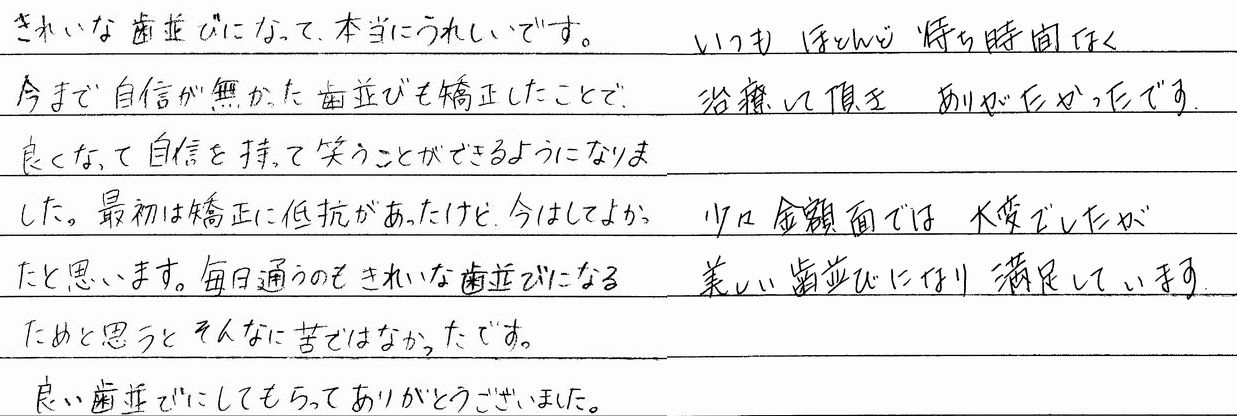 きれいな歯並びになって、本当にうれしいです。
今まで自信が無かった歯並びも矯正したことで、
良くなって自信を持って笑うことができるようになりま
した。最初は矯正に低抗があったけど、今はしてよかっ
たと思います。毎日通うのもきれいな歯並びになる
ためと思うとそんなに苦ではなかったです。
良い歯並びにしてもらってありがとうございました。
いつも ほとんど 待ち時間なく
治療して頂き ありがたかったです.
少々金額面では 大変でしたが
美しい歯並びになり 満足しています.